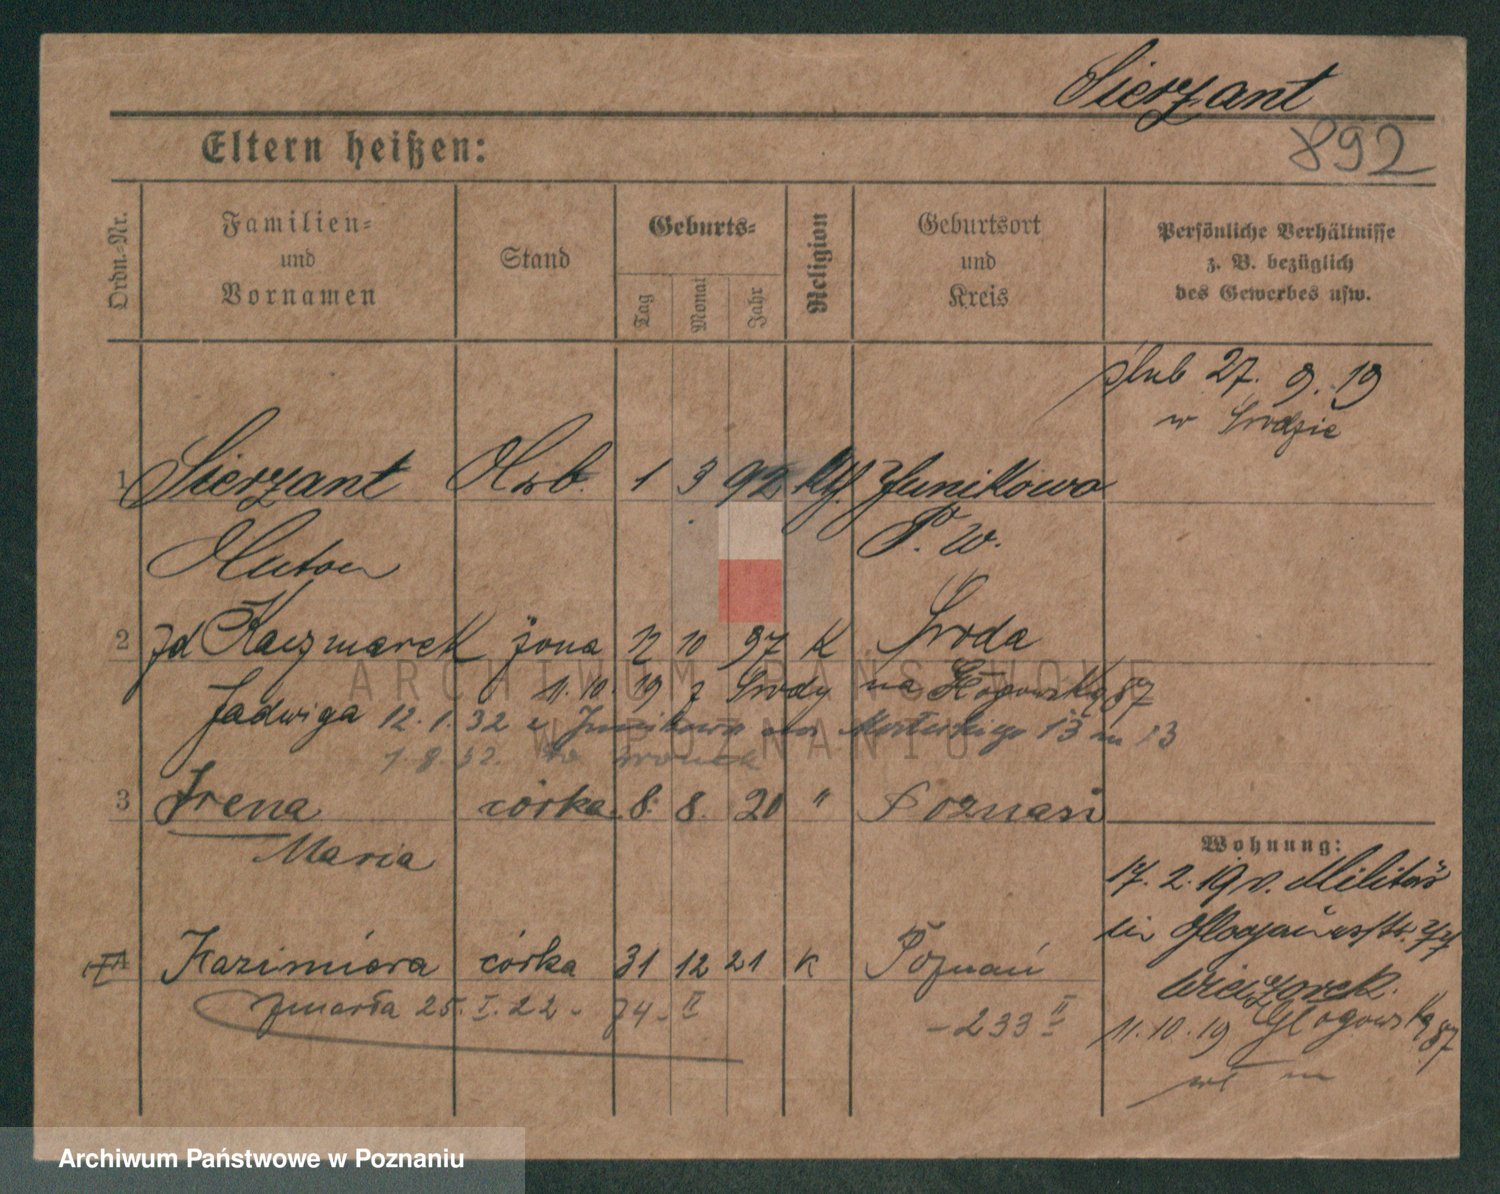 Sierzant
892
Eltern heißen:
Ordn.-Nr.
Familien-
und
Vornamen
Stand
Geburts-
Tag
Monat
Jahr
Religion
Geburtsort
und
Kreis
Persönliche Verhältnisse
z. B. bezüglich
des Gewerbes usw.
ślub 27. 9. 19
w Środzie
1 Sierzant 1 3 92 Kth. Junikowo
Anton P. W.
2 Kaczmarek żona 12 10 97 K Środa
Jadwiga 11. 10. 19 z Środy na Głogowską 87
12. 1. 32 z Junikowa
1. 8. 32.
3 Irena córka 8. 8. 20 " Poznań
Maria
Wohnung:
17. 2. 19 v. Militär
Wieczorek.
11. 10. 19 Głogowska 87
4 Kazimiera córka 31 12 21 K Poznań
zmarła 25. I. 22 - 74 - II
- 233 II
ARCHIWUM PAŃSTWOWE
W POZNANIU
Archiwum Państwowe w Poznaniu